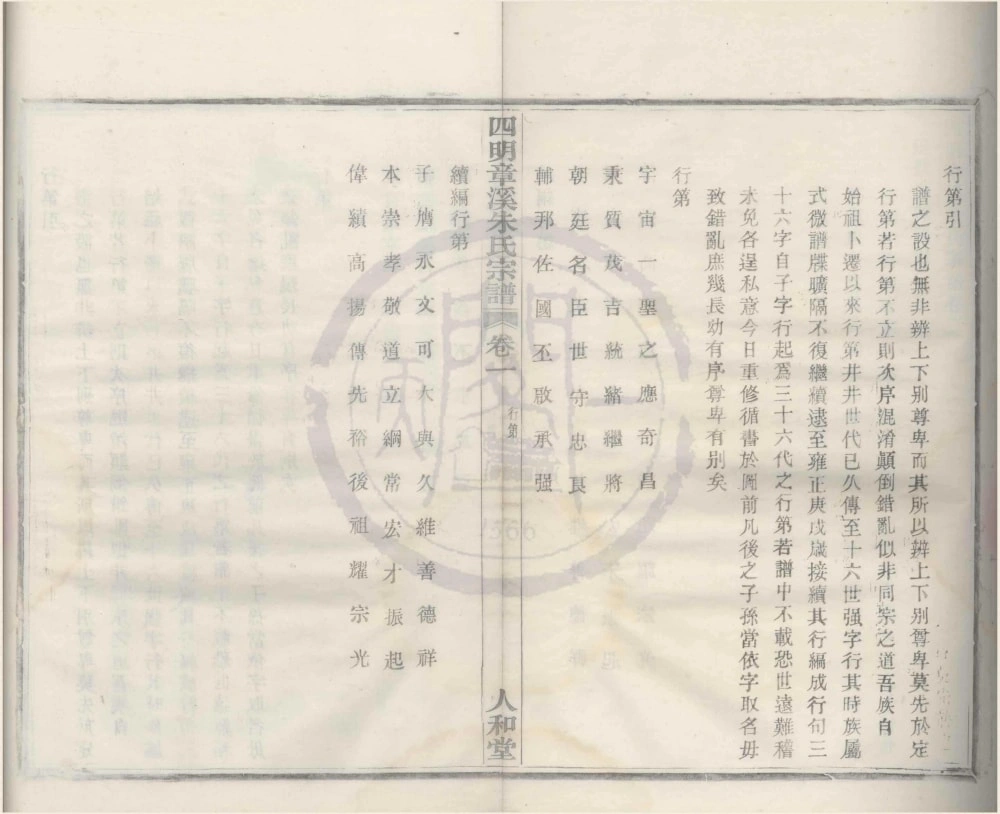 行第引
譜之設也無非辨上下别尊卑而其所以辨上下别尊卑莫先於定
行第若行第不立則次序混淆顛倒錯亂似非同宗之道吾族自
始祖卜遷以來行第井井世代已久傳至十六世强字行其時族屬
式微譜牒曠隔不復繼續逮至雍正庚戌歲接續其行編成行句三
十六字自子字行起爲三十六代之行第若譜中不載恐世遠難稽
未免各逞私意今日重修循書於圖前凡後之子孫當依字取名毋
致錯亂庶幾長幼有序尊卑有别矣
行第
宇宙一聖之應奇昌
秉質茂吉統緒繼將
朝廷名臣世守忠良
輔邦佐國丕啟承强
四明章溪朱氏宗譜 卷一 行第 人和堂
續編行第
子脩永文可大與久維善德祥
本崇孝敬道立綱常宏才振起
偉績高揚傳先裕後祖耀宗光
1366